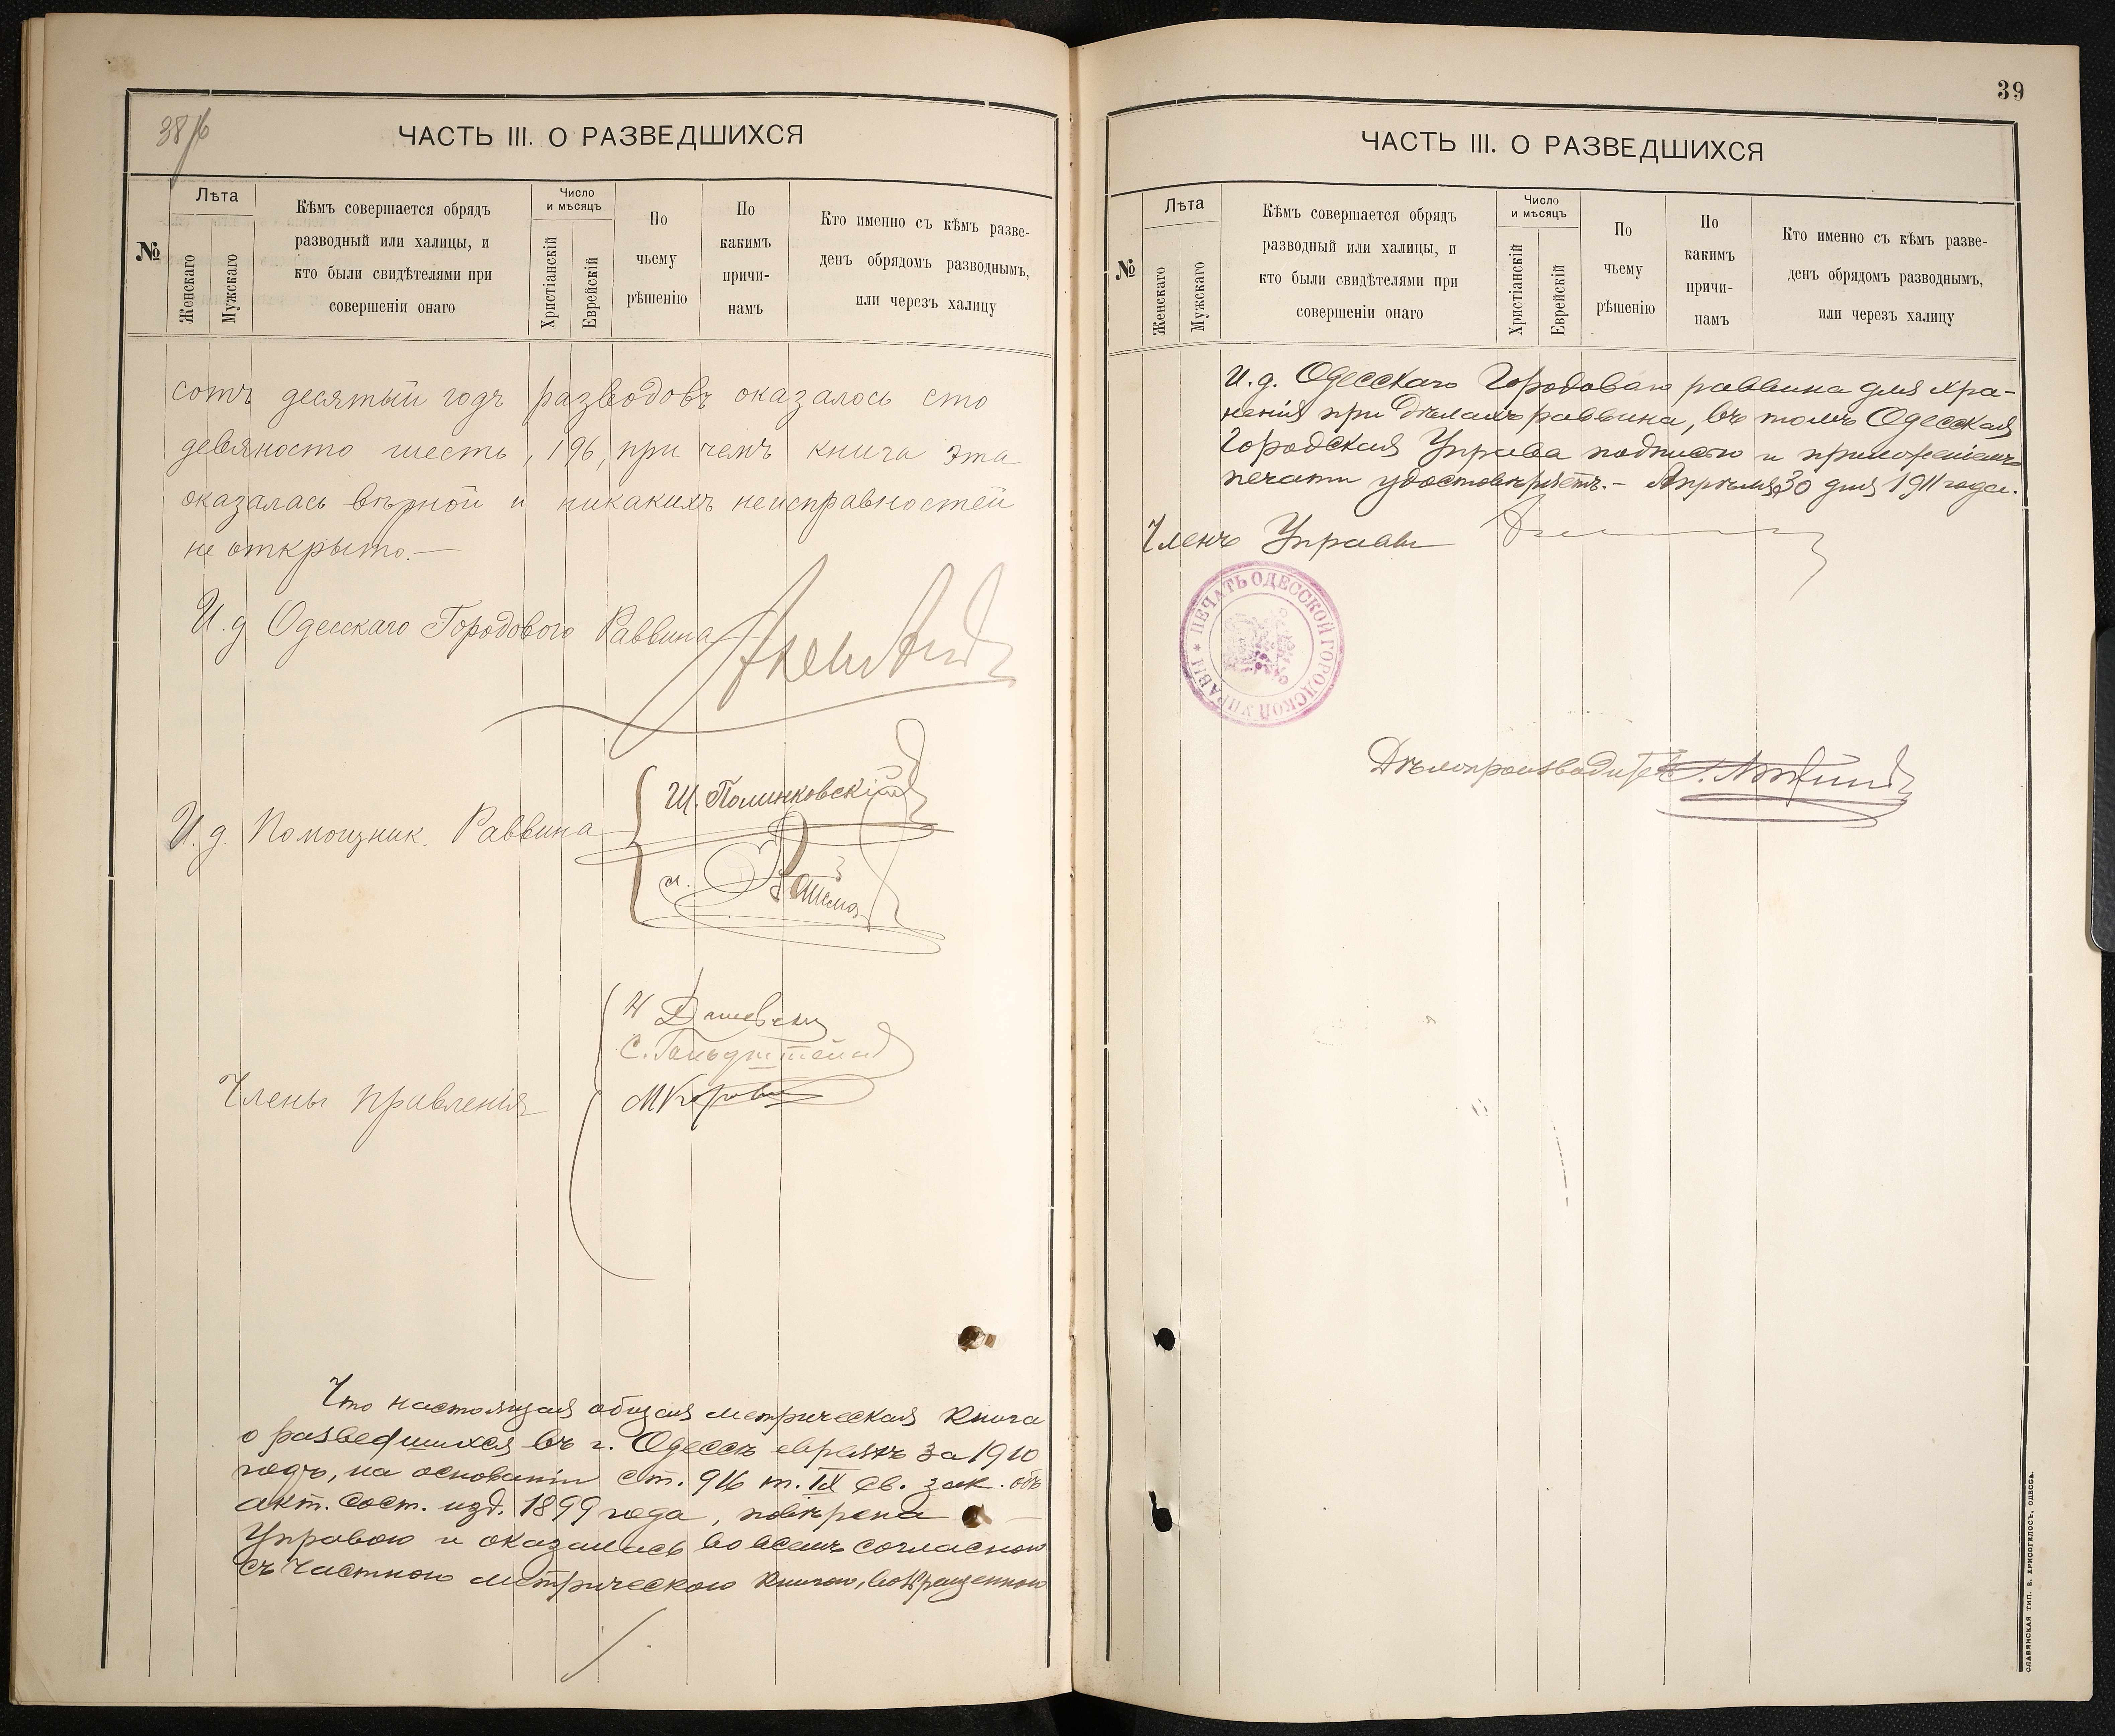 38 /б
ЧАСТЬ III. О РАЗВЕДШИХСЯ
№
Лѣта
Женскаго
Мужскаго
Кѣмъ совершается обрядъ
разводный или халицы, и
кто были свидѣтелями при
совершеніи онаго
Число
и мѣсяцъ
Христіанскій
Еврейскій
По
чьему
рѣшенію
По
какимъ
причи-
намъ
Кто именно съ кѣмъ разве-
денъ обрядомъ разводнымъ,
или черезъ халицу
сотъ десятый годъ разводовъ оказалось сто
девяносто шесть, 196, при чемъ книга эта
оказалась вѣрной и никакихъ неисправностей
не открыто.—
И. д. Одесскаго Городового Раввина
И. д. Помощник. Раввина
Ш. Полинковскій
Члены правленія
С. Гольдштейнъ
Что настоящая общая метрическая книга
о разведшихся въ г. Одессѣ евреяхъ за 1910
годъ, на основаніи ст. 916 т. IX св. зак. объ
акт. сост. изд. 1899 года, повѣрена
Управою и оказалась во всемъ согласною
съ частною метрическою книгою, возвращенною
39
ЧАСТЬ III. О РАЗВЕДШИХСЯ
№
Лѣта
Женскаго
Мужскаго
Кѣмъ совершается обрядъ
разводный или халицы, и
кто были свидѣтелями при
совершеніи онаго
Число
и мѣсяцъ
Христіанскій
Еврейскій
По
чьему
рѣшенію
По
какимъ
причи-
намъ
Кто именно съ кѣмъ разве-
денъ обрядомъ разводнымъ,
или черезъ халицу
И. д. Одесскаго Городоваго раввина для хра-
ненія при дѣлахъ раввина, въ томъ Одесская
Городская Управа подписью и приложеніемъ
печати удостовѣряетъ.— Апрѣля 30 дня 1911 года.
Членъ Управы
ПЕЧАТЬ ОДЕССКОЙ ГОРОДСКОЙ УПРАВЫ *
Дѣлопроизводитель
СЛАВЯНСКАЯ ТИП. Е. ХРИСОГЕЛОСЪ, ОДЕССА.